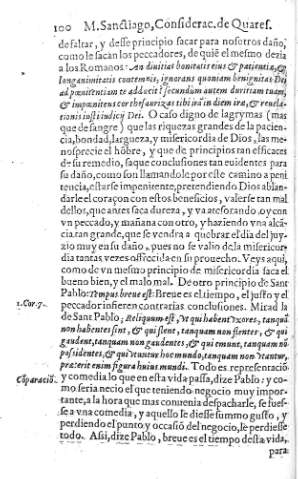 100 M. Sanctiago, Considerac. de Quares.
de faltar, y desse principio sacar para nuestros daños,
como le sacan los peccadores, de quiē el mesmo dezia
a los Romanos: An diuitias bonitatis eius & patientiæ, &
longanimitatis contemnis, ignorans quoniam benignitas Dei
ad pœnitentiam te adducit? secundum autem duritiam tuam,
& impœnitens cor thesaurizas tibi iram in die iræ, & reuela-
tionis iusti iudicij Dei. O caso digno de lagrymas (mas
que de sangre) que las riquezas grandes de la pacien-
cia, bondad, largueza, y misericordia de Dios, las me-
nosprecie el hōbre, y que de principios tan efficaces
de su remedio, saque conclusiones tan euidentes para
su daño, como son llamandole por este camino a peni
tencia, estarse impenitente, pretendiendo Dios ablan-
darle el coraçon con estos beneficios, valerse tan mal
dellos, que antes saca dureza, y va atesorando oy con
vn peccado, y mañana con otro, y haziendo vna alcā-
cia tan grande, que se vendra a quebrar el dia del juy-
zio muy en su daño, pues no se valio de la misericor
dia tantas vezes offrecida en su prouecho. Veys aqui,
como de vn mesmo principio de misericordia saca el
bueno bien, y el malo mal. De otro principio de Sant
Pablo: Tempus breue est: Breue es el tiempo, el justo y el
1. Cor. 7. peccador infieren contrarias conclusiones. Mirad la
de Sant Pablo: Reliquum est, vt qui habent vxores, tanquā
non habentes sint, & qui flent, tanquam non flentes, & qui
gaudent, tanquam non gaudentes, & qui emunt, tanquam nō
possidentes, & qui vtuntur hoc mundo, tanquam non vtantur,
præterit enim figura huius mundi. Todo es representació
Cōparació. y comedia lo que en esta vida passa, dize Pablo: y co-
mo seria necio el que teniendo negocio muy impor-
tante, a la hora que mas conuenia despacharle, se fues-
se a vna comedia, y aquello le diesse summo gusto, y
perdiendo el punto y occasiō del negocio, le perdiesse
todo. Assi, dize Pablo, breue es el tiempo desta vida,
para